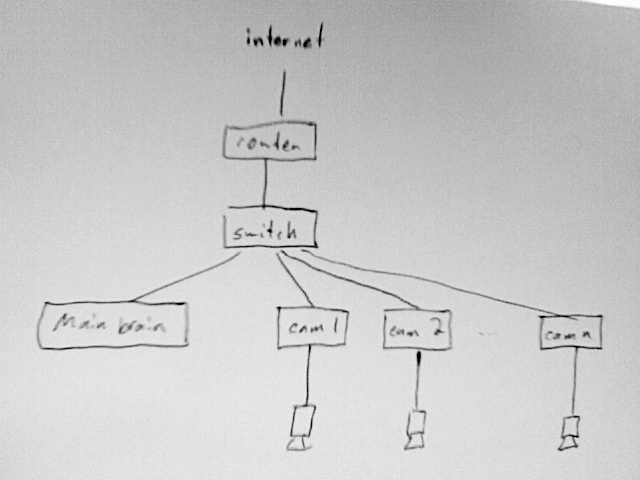 internet
router
switch
Main brain
cam 1
cam 2
...
cam n